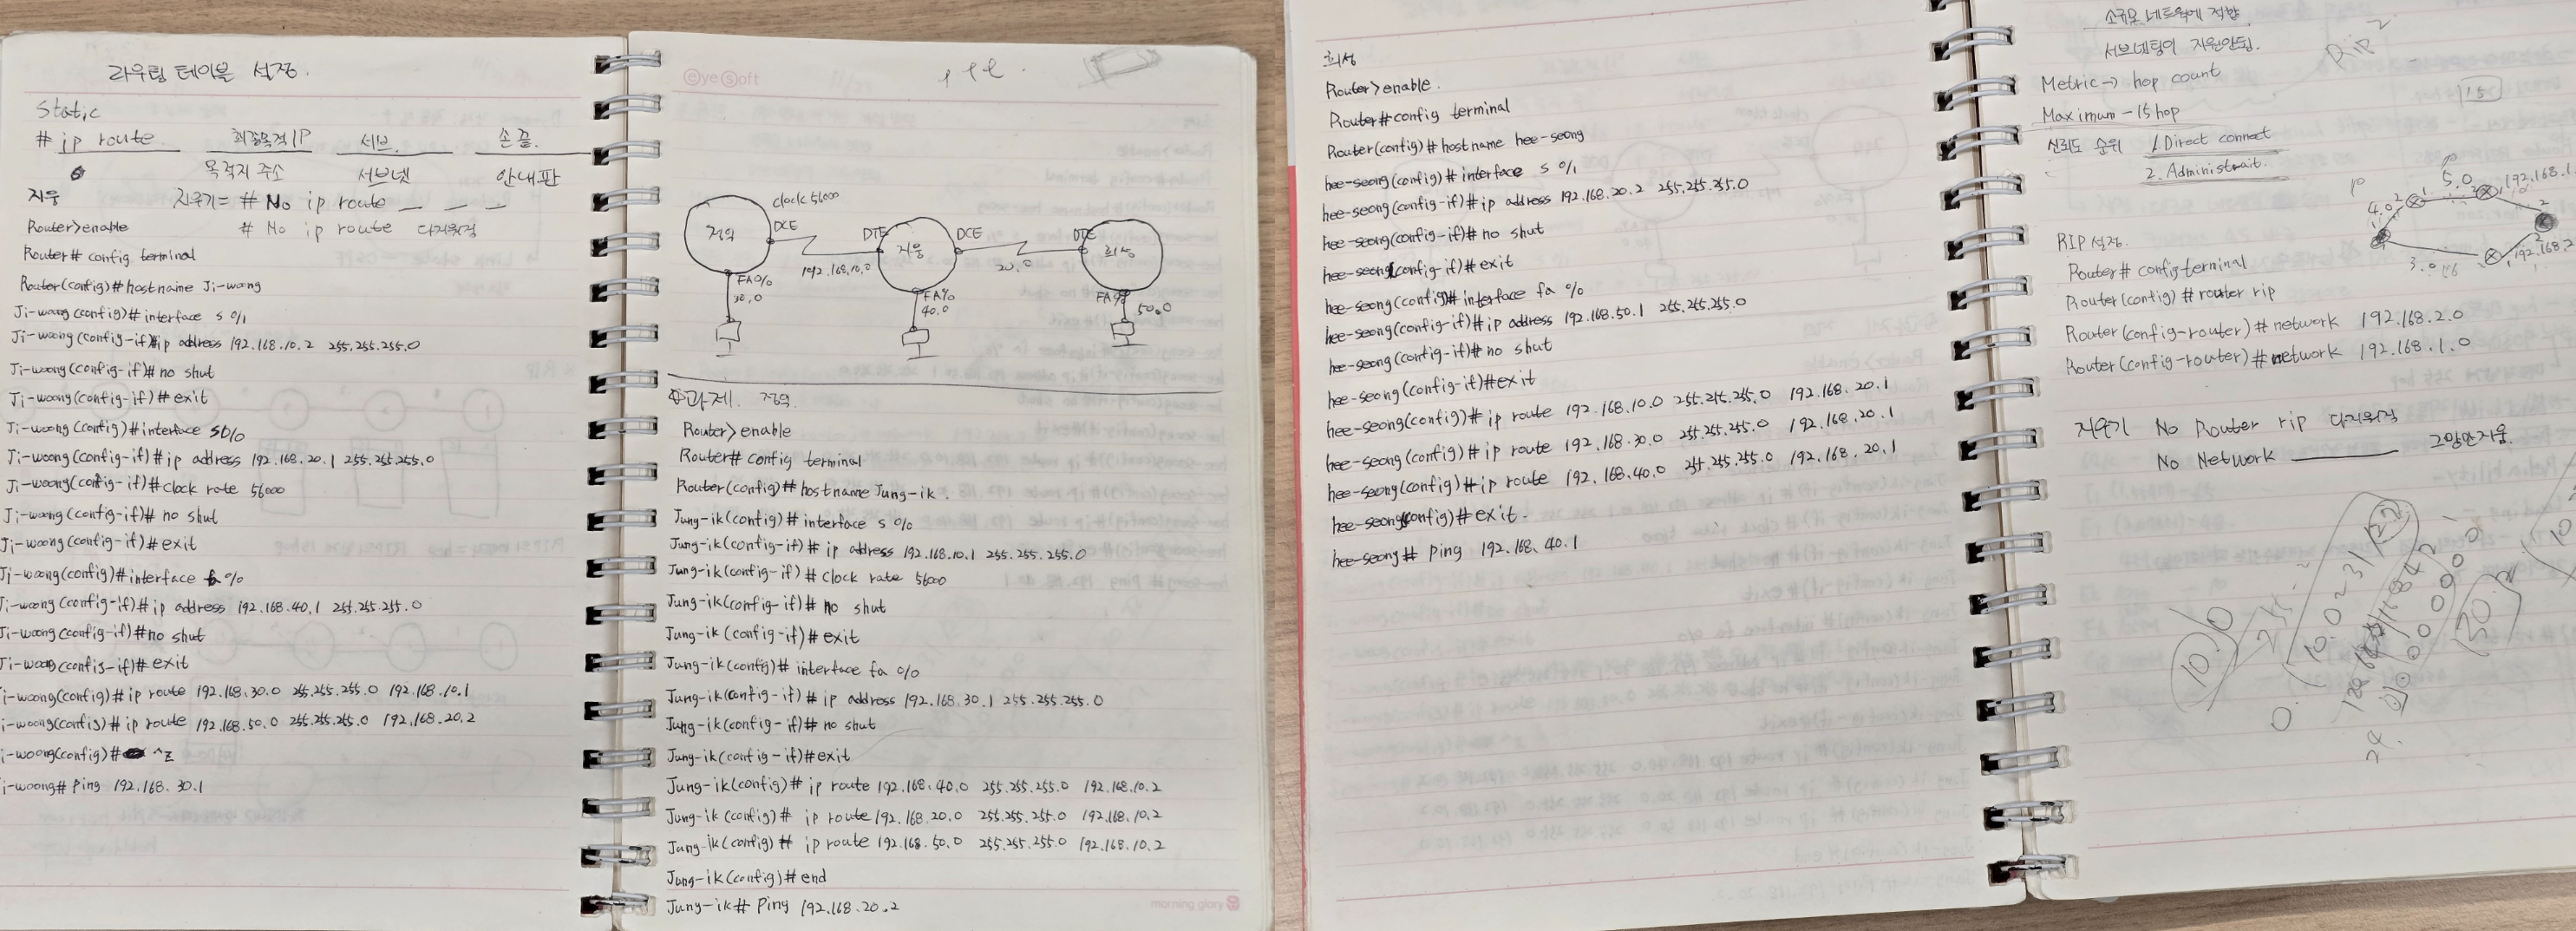 라우팅 테이블 설정.
Static
# ip route 최종목적IP 서브. 손끝.
목적지 주소 서브넷 안내판
지웅 지우기= # No ip route _ _ _
Router>enable # No ip route 다지워짐
Router# config terminal
Router(config)# hostname Ji-woong
Ji-woong(config)# interface s 0/1
Ji-woong(config-if)#ip address 192.168.10.2 255.255.255.0
Ji-woong(config-if)# no shut
Ji-woong(config-if)# exit
Ji-woong(config)#interface s0/0
Ji-woong(config-if)#ip address 192.168.20.1 255.255.255.0
Ji-woong(config-if)#clock rate 56000
Ji-woong(config-if)# no shut
Ji-woong(config-if)#exit
Ji-woong(config)#interface fa 0/0
Ji-woong(config-if)#ip address 192.168.40.1 255.255.255.0
Ji-woong(config-if)#no shut
Ji-woong(config-if)# exit
i-woong(config)# ip route 192.168.30.0 255.255.255.0 192.168.10.1
i-woong(config)# ip route 192.168.50.0 255.255.255.0 192.168.20.2
i-woong(config)# ^z
i-woong# Ping 192.168.30.1
eyesoft
clock 56000
정익 DCE DTE 지웅 DCE DTE 희성
192.168.10.0 20.0
FA0/0 FA0/0 FA0/0
30.0 40.0 50.0
과제. 정익.
Router>enable
Router# config terminal
Router(config)# hostname Jung-ik.
Jung-ik(config)# interface s 0/0
Jung-ik(config-if)# ip address 192.168.10.1 255.255.255.0
Jung-ik(config-if)# clock rate 56000
Jung-ik(config-if)# no shut
Jung-ik(config-if)# exit
Jung-ik(config)# interface fa 0/0
Jung-ik(config-if)# ip address 192.168.30.1 255.255.255.0
Jung-ik(config-if)# no shut
Jung-ik(config-if)#exit
Jung-ik(config)# ip route 192.168.40.0 255.255.255.0 192.168.10.2
Jung-ik(config)# ip route 192.168.20.0 255.255.255.0 192.168.10.2
Jung-ik(config)# ip route 192.168.50.0 255.255.255.0 192.168.10.2
Jung-ik(config)# end
Jung-ik# Ping 192.168.20.2
morning glory
희성
Router>enable.
Router# config terminal
Router(config)# hostname hee-seong
hee-seong(config)# interface s 0/1
hee-seong(config-if)# ip address 192.168.20.2 255.255.255.0
hee-seong(config-if)# no shut
hee-seong(config-if)# exit
hee-seong(config)# interface fa 0/0
hee-seong(config-if)# ip address 192.168.50.1 255.255.255.0
hee-seong(config-if)# no shut
hee-seong(config-if)#exit
hee-seong(config)# ip route 192.168.10.0 255.255.255.0 192.168.20.1
hee-seong(config)# ip route 192.168.30.0 255.255.255.0 192.168.20.1
hee-seong(config)# ip route 192.168.40.0 255.255.255.0 192.168.20.1
hee-seong(config)# exit.
hee-seong# Ping 192.168.40.1
소규모 네트웍에 적합
서브네팅이 지원안됨.
Rip 2
Metric→ hop count
15
Maximum - 15hop
신뢰도 순위 1. Direct connect
2. Administrait.
5.0 192.168.1.
4.0
3.0 192.168.2
RIP 설정.
Router# config terminal
Router(config)# router rip
Router(config-router)# network 192.168.2.0
Router(config-router)# network 192.168.1.0
지우기 No Router rip 다지워짐
No Network ______ 그망만지움.